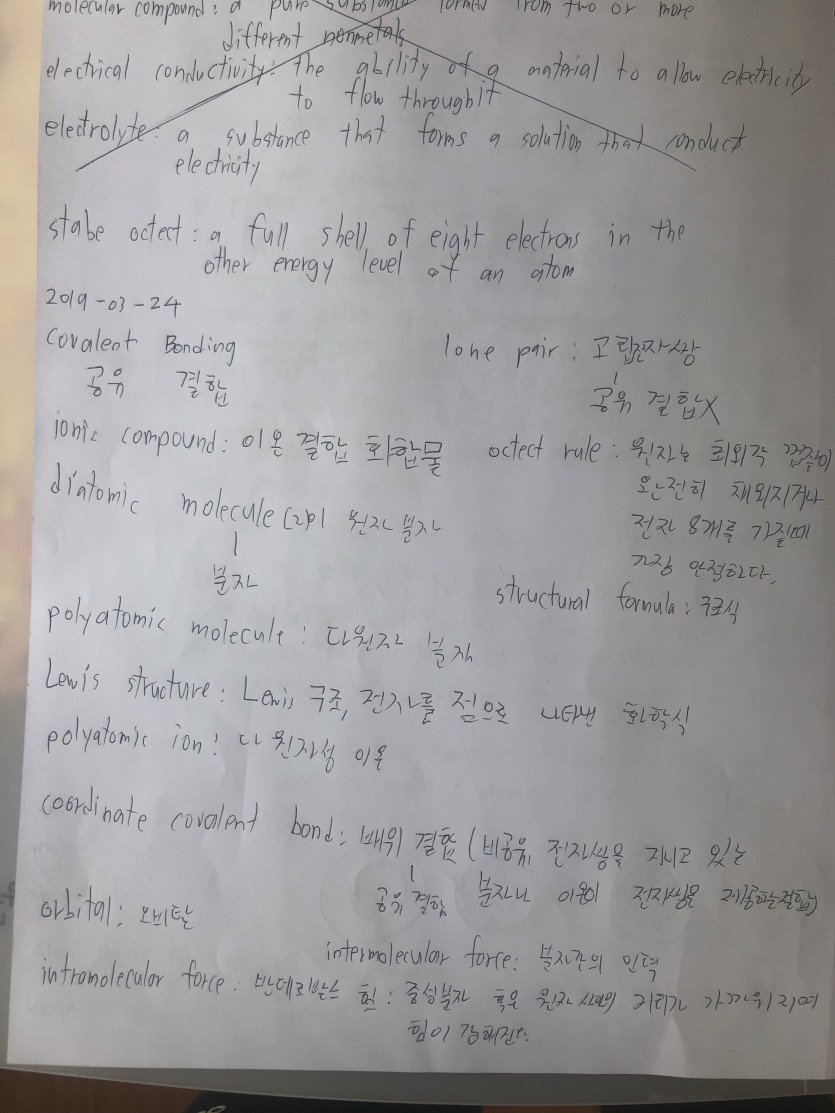 molecular compound: a pure substance formed from two or more
different nonmetals
electrical conductivity: the ability of a material to allow electricity
to flow through it
electrolyte: a substance that forms a solution that conduct
electricity
stabe octect: a full shell of eight electrons in the
other energy level of an atom
2019-03-24
Covalent Bonding
공유 결합
lone pair: 고립전자쌍
공유 결합X
ionic compound: 이온 결합 화합물
octect rule: 원자는 최외각 껍질이
완전히 채워지거나
전자 8개를 가질때
가장 안정하다.
diatomic molecule 원자 분자
분자
structural formula: 구조식
polyatomic molecule: 다원자 분자
Lewis structure: Lewis 구조, 전자를 점으로 나타낸 화학식
polyatomic ion: 다원자성 이온
coordinate covalent bond: 배위 결합 (비공유 전자쌍을 지니고 있는
공유 결합
분자나 이온이 전자쌍을 제공하는결합)
orbital: 오비탈
intermolecular force: 분자간의 인력
intramolecular force: 반데르발스 힘: 중성분자 혹은 원자 사이의 거리가 가까워지며
힘이 강해진다.